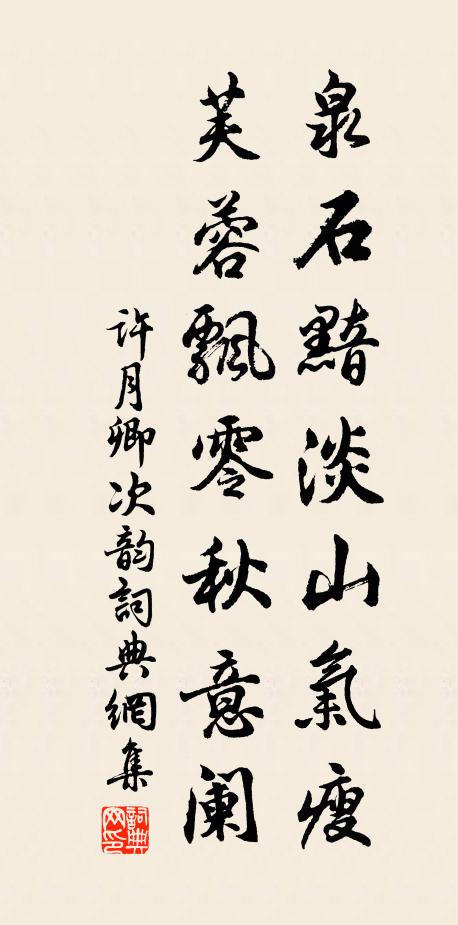 泉石黯淡山氣瘦
芙蓉飄零秋意阑
许月卿次韵詞典網集
詞典网印